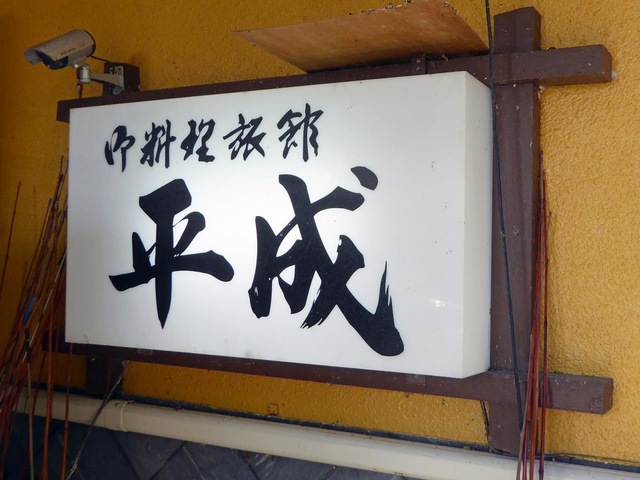 御料理旅館
平成